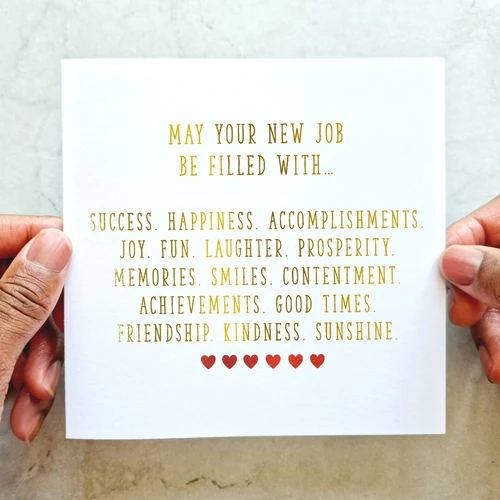 MAY YOUR NEW JOB
BE FILLED WITH...
SUCCESS. HAPPINESS. ACCOMPLISHMENTS.
JOY. FUN. LAUGHTER. PROSPERITY.
MEMORIES. SMILES. CONTENTMENT.
ACHIEVEMENTS. GOOD TIMES.
FRIENDSHIP. KINDNESS. SUNSHINE.